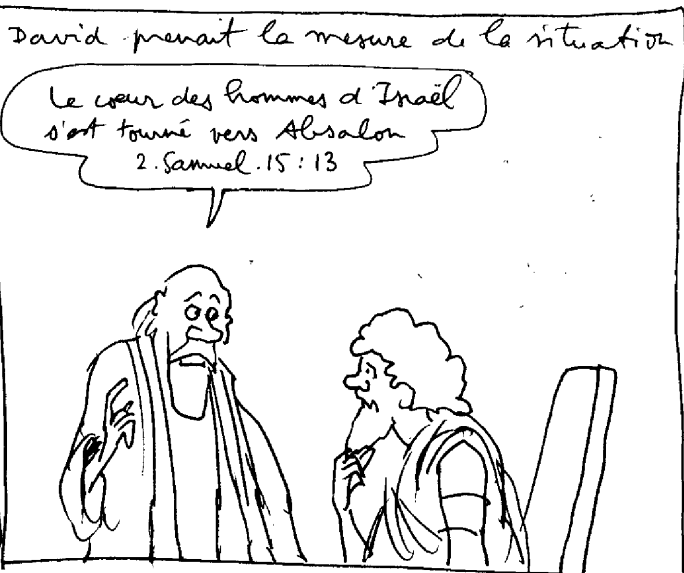 David prenait la mesure de la situation
Le coeur des hommes d'Israël
s'est tourné vers Absalon
2.Samuel.15:13